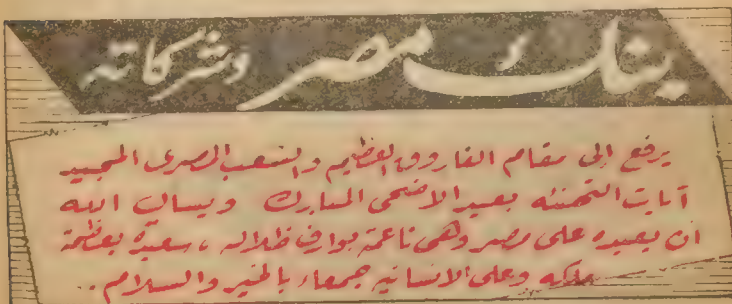 بنك مصر وشركاته
يرفع إلى مقام الفاروق العظيم والشعب المصرى المجيد
آيات التهنئه بعيد الاضحى المبارك ويسأل الله
ان يعيده على مصر وهى ناعمة بوارف ظلاله ، سعيدة بعظمة
ملكه وعلى الانسانيه جمعاء بالخير والسلام ..